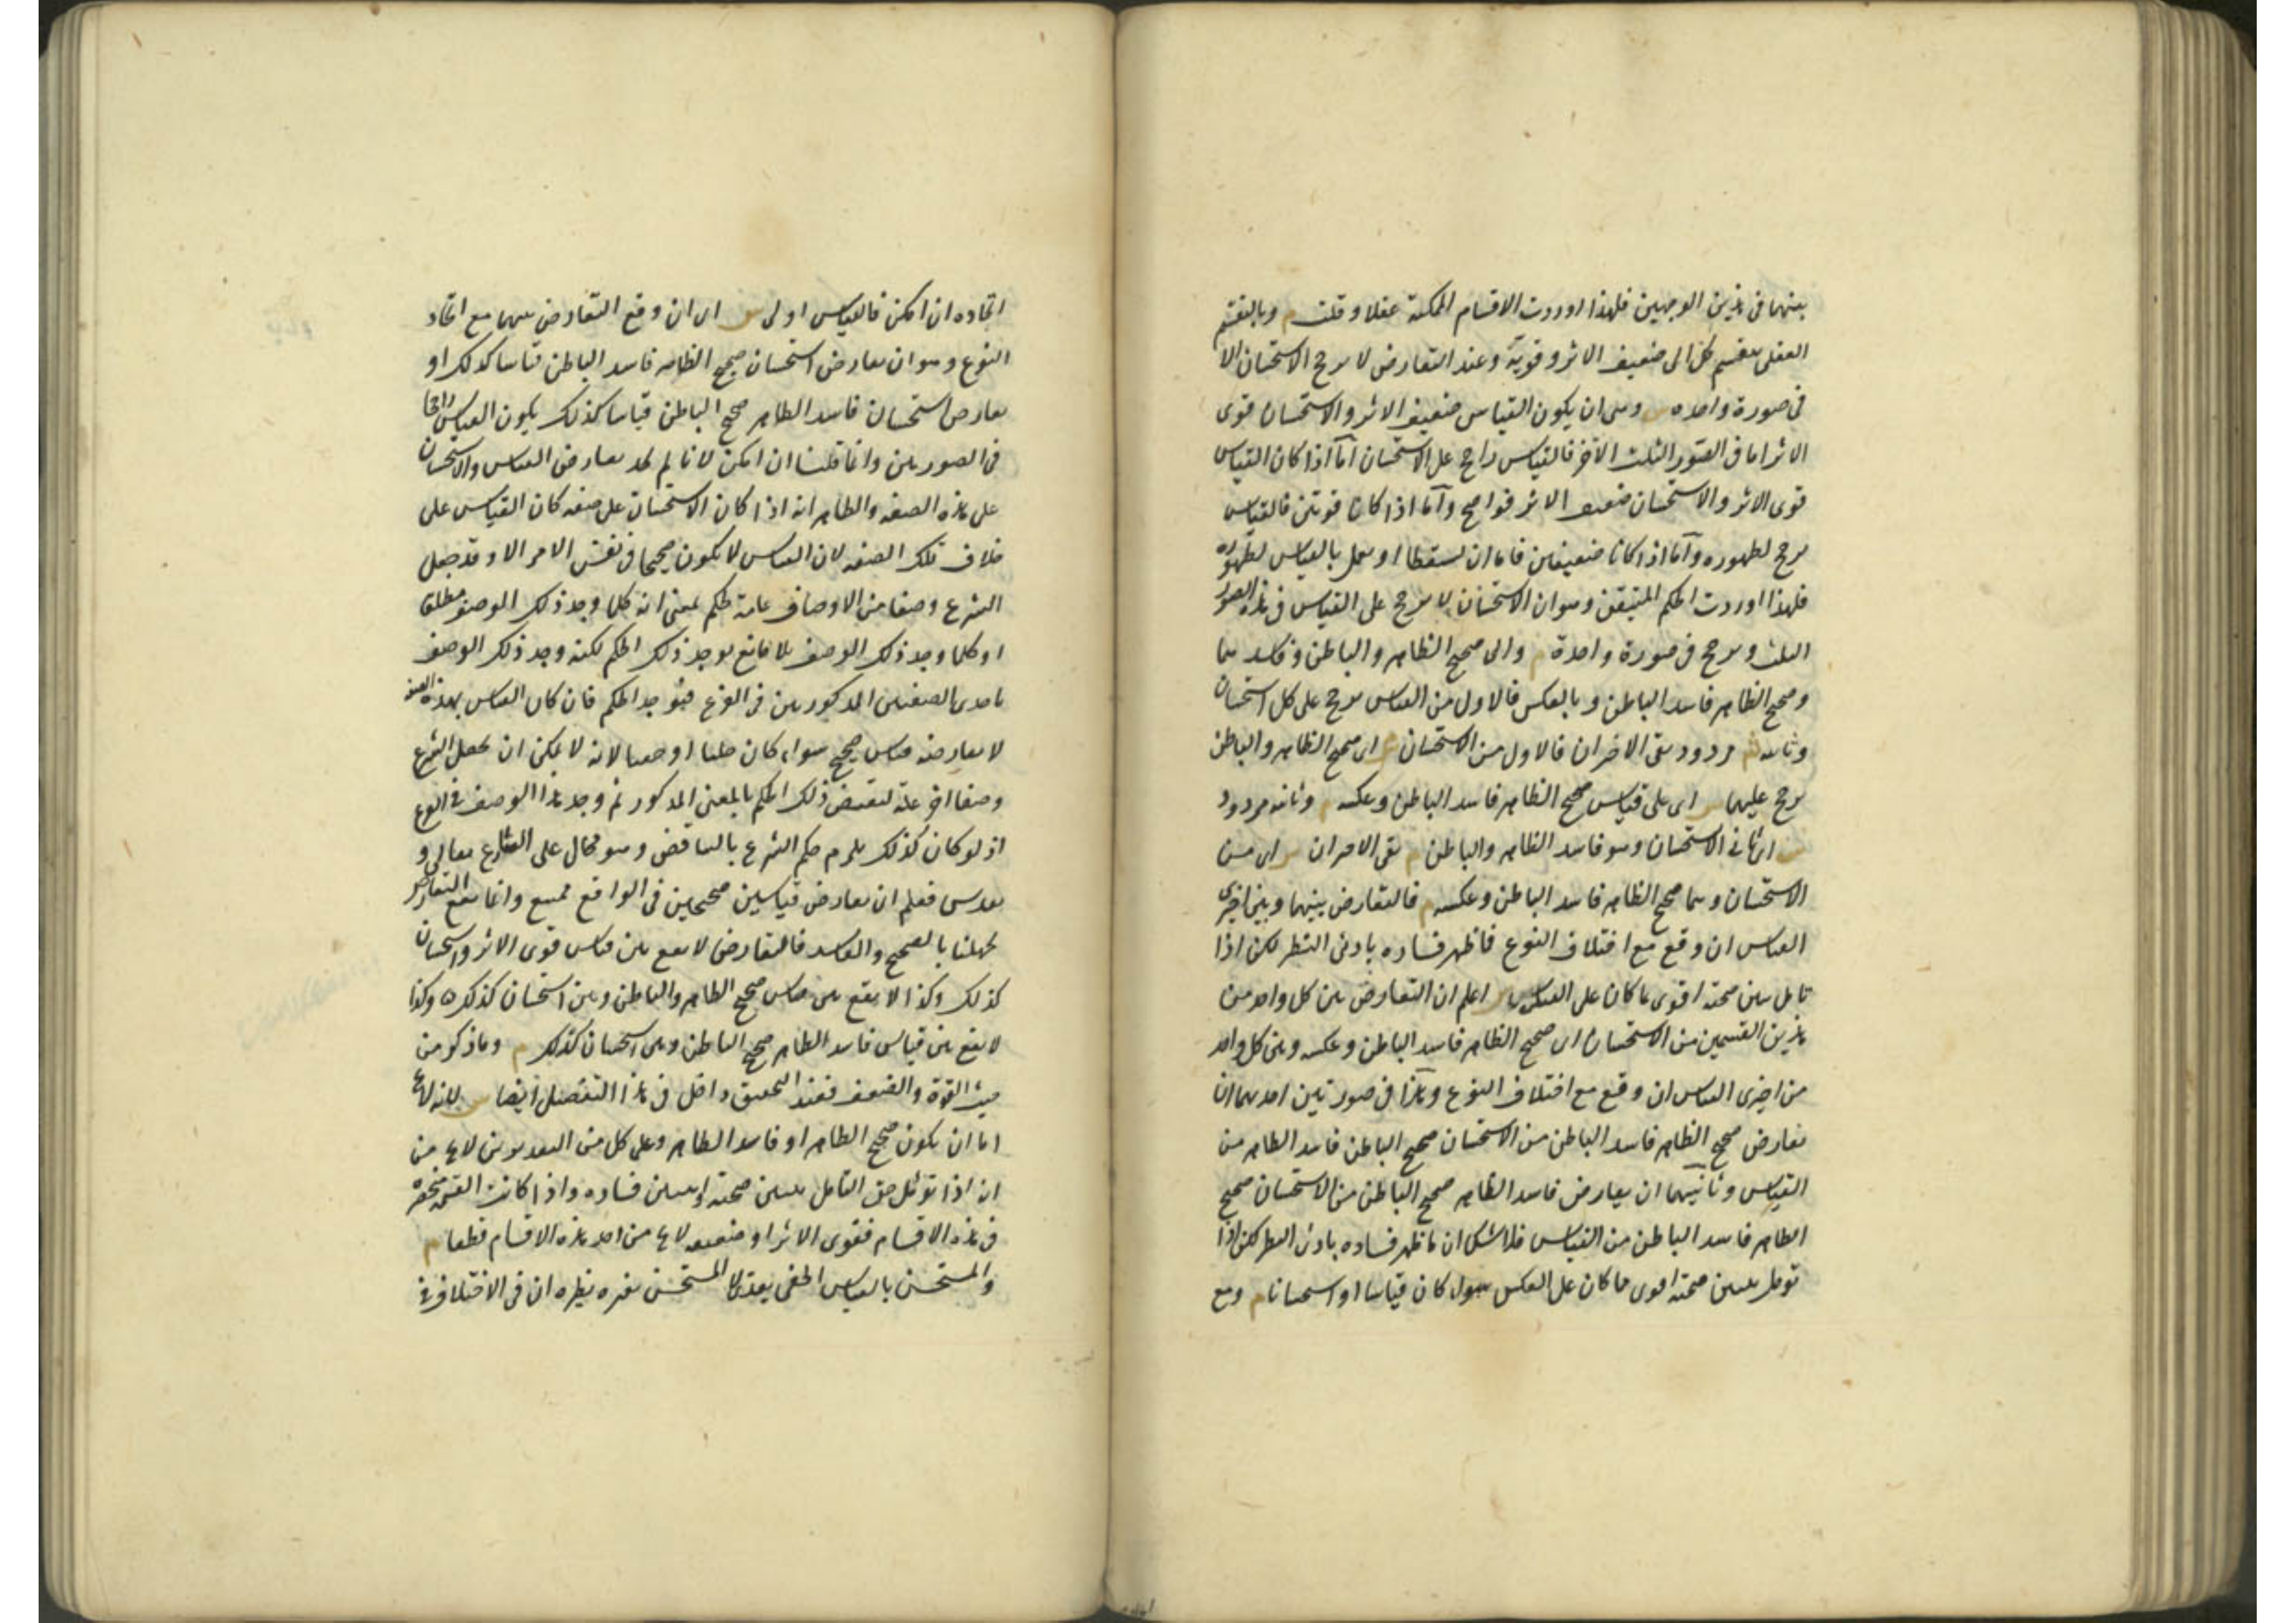 بينهما فى هذين الوجهين فلهذا اوردت الاقسام الممكنة عقلا وقلت م وبالتقسيم
العقلى ينقسم كل الى ضعيف الاثر وقويه وعند التعارض لا يرجح الاستحسان الا
فى صورة واحدة س وهى ان يكون القياس ضعيف الاثر والاستحسان قوى
الاثر اما فى الصور الثلث الاخر فالقياس راجح على الاستحسان اما اذا كان القياس
قوى الاثر والاستحسان ضعيف الاثر فواضح واما اذا كانا قويين فالقياس
يرجح لظهوره واما اذا كانا ضعيفين فاما ان يسقطا او يعمل بالقياس لظهوره
فلهذا اوردت الحكم المتيقن وهو ان الاستحسان لا يرجح على القياس فى هذه الصور
الثلث ويرجح فى صورة واحدة م والى صحيح الظاهر والباطن وفاسدهما
وصحيح الظاهر فاسد الباطن وبالعكس فالاول من القياس يرجح على كل استحسان
وثانيه مردود بقى الاخران فالاول من الاستحسان س اى صحيح الظاهر والباطن
يرجح عليهما س اى على قياس صحيح الظاهر فاسد الباطن وعكسه م وثانيه مردود
س اى ثانى الاستحسان وهو فاسد الظاهر والباطن م بقى الاخران س اى من
الاستحسان وهما صحيح الظاهر فاسد الباطن وعكسه م فالتعارض بينهما وبين اخيرى
القياس ان وقع مع اختلاف النوع فما ظهر فساده بادى النظر لكن اذا
تامل يتبين صحته اقوى مما كان على العكس س اعلم ان التعارض بين كل واحد من
هذين القسمين من الاستحسان اى صحيح الظاهر فاسد الباطن وعكسه وبين كل واحد
من اخيرى القياس ان وقع مع اختلاف النوع وهذا فى صورتين احديهما ان
يعارض صحيح الظاهر فاسد الباطن من الاستحسان صحيح الباطن فاسد الظاهر من
القياس وثانيهما ان يعارض فاسد الظاهر صحيح الباطن من الاستحسان صحيح
الظاهر فاسد الباطن من القياس فلا شك ان ما ظهر فساده بادى النظر لكن اذا
تومل يتبين صحته اقوى مما كان على العكس سواء كان قياسا او استحسانا م ومع
اتحاده ان امكن فالقياس اولى س اى ان وقع التعارض بينهما مع اتحاد
النوع وهو ان يعارض استحسان صحيح الظاهر فاسد الباطن قياسا كذلك او
يعارض استحسان فاسد الظاهر صحيح الباطن قياسا كذلك يكون القياس راجحا
فى الصورتين وانما قلنا ان امكن لانا لم نجد تعارض القياس والاستحسان
على هذه الصفة والظاهر انه اذا كان الاستحسان على صفة كان القياس على
خلاف تلك الصفة لان القياس لا يكون صحيحا فى نفس الامر الا وقد جعل
الشرع وصفا من الاوصاف علة لحكم بمعنى انه كلما وجد ذلك الوصف مطلقا
او كلما وجد ذلك الوصف بلا مانع يوجد ذلك الحكم لكنه وجد ذلك الوصف
باحدى الصفتين المذكورتين فى الفرع فيوجد الحكم فان كان القياس بهذه الصفة
لا يعارضه قياس صحيح سواء كان جليا او خفيا لانه لا يمكن ان يجعل الشرع
وصفا اخر علة لنقيض ذلك الحكم بالمعنى المذكور ثم وجد هذا الوصف فى الفرع
اذ لو كان كذلك يلزم حكم الشرع بالتناقض وهو محال على الشارع تعالى و
تقدس فعلم ان تعارض قياسين صحيحين فى الواقع ممتنع وانما يقع التعارض
لجهلنا بالصحيح والفاسد فالتعارض لا يقع بين قياس قوى الاثر واستحسان
كذلك وكذا لا يقع بين قياس صحيح الظاهر والباطن وبين استحسان كذلك وكذا
لا يقع بين قياس فاسد الظاهر صحيح الباطن وبين استحسان كذلك م وما ذكر من
حيث القوة والضعف فعند التحقيق داخل فى هذا التفصيل ايضا س لانه لا يخ
اما ان يكون صحيح الظاهر او فاسد الظاهر وعلى كل من التقديرين لا يخ من
انه اذا تومل حق التامل يتبين صحته او يتبين فساده واذا كانت القسمة منحصرة
فى هذه الاقسام فقوى الاثر او ضعيفه لا يخ من احد هذه الاقسام قطعا م
والمستحسن بالقياس الخفى يعدى لا المستحسن بغيره نظيره ان فى الاختلاف فى